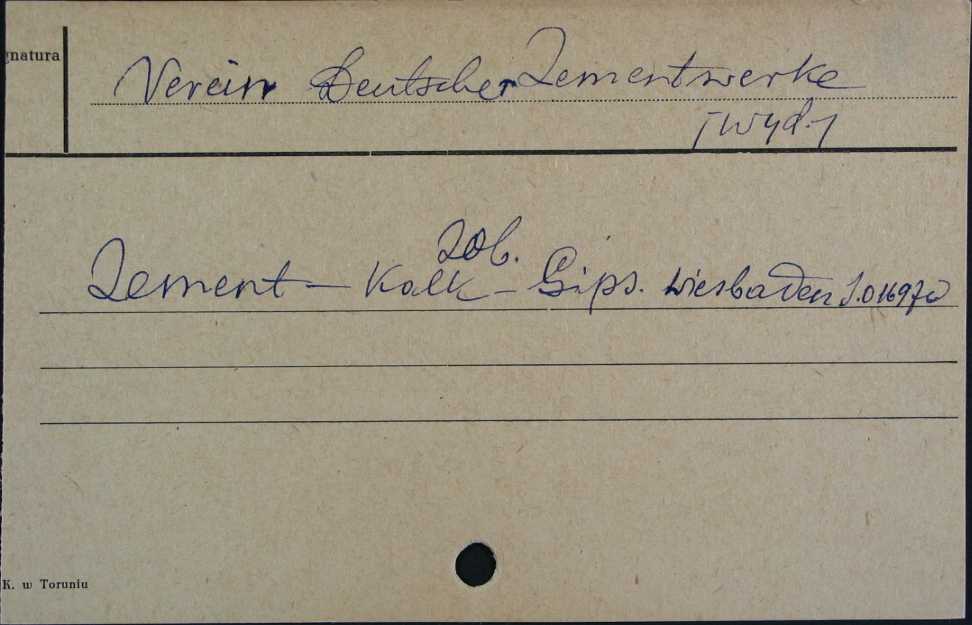 gnatura
Verein Deutscher Zementwerke
[wyd.]
Zob.
Zement - Kalk - Gips. Wiesbaden
K. w Toruniu